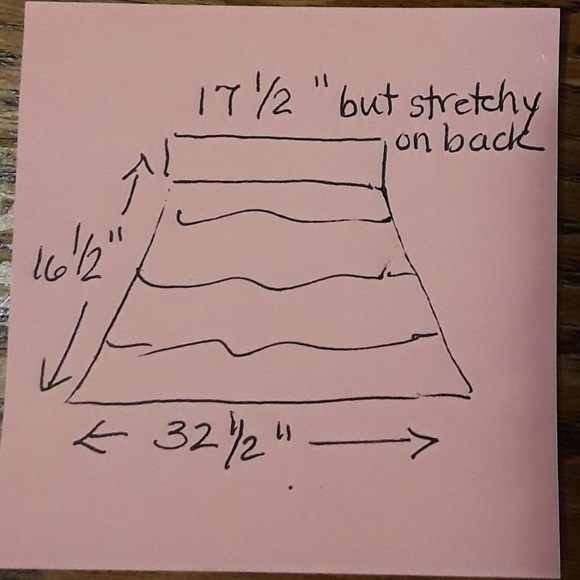 17 1/2 " but stretchy
on back
16 1/2"
32 1/2"